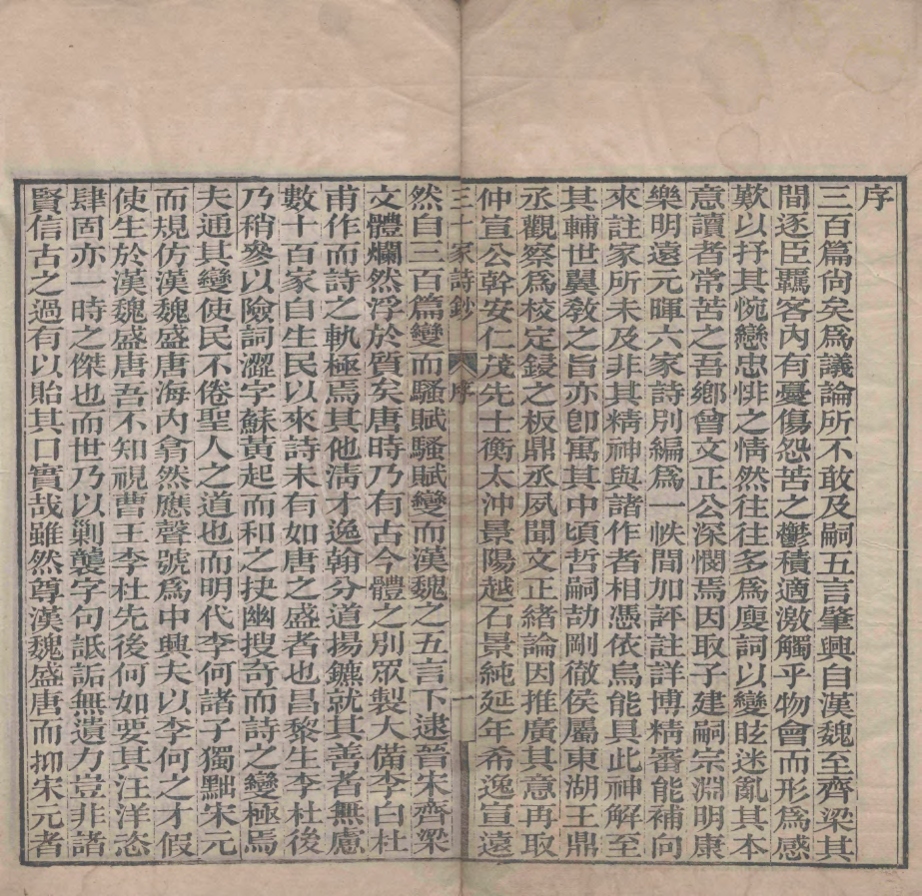 序
三百篇尙矣爲議論所不敢及嗣五言肇興自漢魏至齊梁其
間逐臣羈客內有憂傷怨苦之鬱積適激觸乎物會而形爲感
歎以抒其惋戀忠悱之情然往往多爲廋詞以變眩迷亂其本
意讀者常苦之吾鄉曾文正公深憫焉因取子建嗣宗淵明康
樂明遠元暉六家詩別編爲一帙間加評註詳博精審能補向
來註家所未及非其精神與諸作者相憑依烏能具此神解至
其輔世翼敎之旨亦卽寓其中頃哲嗣劼剛徹侯屬東湖王鼎
丞觀察爲校定鋟之板鼎丞夙聞文正緒論因推廣其意再取
仲宣公幹安仁茂先士衡太沖景陽越石景純延年希逸宣遠
三十家詩鈔
序
一
然自三百篇變而騷賦騷賦變而漢魏之五言下逮晉宋齊梁
文體爛然浮於質矣唐時乃有古今體之別眾製大備李白杜
甫作而詩之軌極焉其他淸才逸翰分道揚鑣就其善者無慮
數十百家自生民以來詩未有如唐之盛者也昌黎生李杜後
乃稍參以險詞澀字蘇黃起而和之抉幽搜奇而詩之變極焉
夫通其變使民不倦聖人之道也而明代李何諸子獨黜宋元
而規仿漢魏盛唐海內翕然應聲號爲中興夫以李何之才假
使生於漢魏盛唐吾不知視曹王李杜先後何如要其汪洋恣
肆固亦一時之傑也而世乃以剿襲字句詆詬無遺力豈非諸
賢信古之過有以貽其口實哉雖然尊漢魏盛唐而抑宋元者